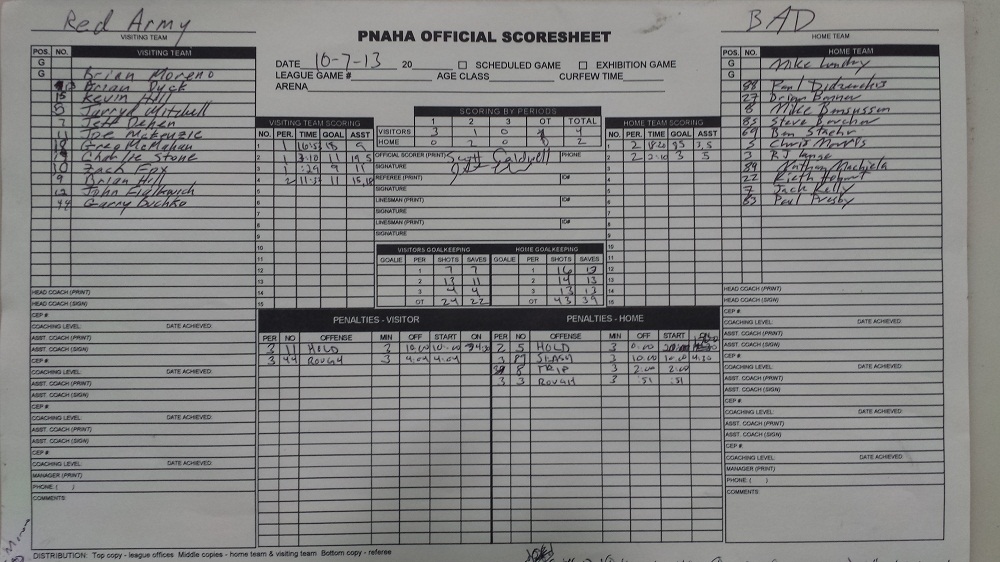 Red Army
VISITING TEAM
BAD
HOME TEAM
PNAHA OFFICIAL SCORESHEET
DATE 10-7-13 20 □ SCHEDULED GAME □ EXHIBITION GAME
LEAGUE GAME # AGE CLASS CURFEW TIME
ARENA
POS. NO. VISITING TEAM
G
G Brian Moreno
Brian Dyck
15 Kevin Hill
5 Jarryd Mitchell
7 Jeff Dehen
11 Joe McKenzie
18 Greg McMahan
19 Charlie Stone
10 Zach Fox
9 Brian Hill
12 John Fialkovich
44 Garry Buchko
HEAD COACH (PRINT)
HEAD COACH (SIGN)
CEP #
COACHING LEVEL: DATE ACHIEVED:
ASST. COACH (PRINT)
ASST. COACH (SIGN)
CEP #
COACHING LEVEL: DATE ACHIEVED:
ASST. COACH (PRINT)
ASST. COACH (SIGN)
CEP #
COACHING LEVEL: DATE ACHIEVED:
ASST. COACH (PRINT)
ASST. COACH (SIGN)
CEP #
COACHING LEVEL: DATE ACHIEVED:
MANAGER (PRINT)
PHONE: ( )
COMMENTS:
VISITING TEAM SCORING
NO. PER. TIME GOAL ASST
1 1 18 9
2 1 3:10 11 19,5
3 1 :29 9 11
4 2 11 15,18
5
6
7
8
9
10
11
12
13
14
15
SCORING BY PERIODS
1 2 3 OT TOTAL
VISITORS 3 1 0 4
HOME 0 2 0 2
OFFICIAL SCORER (PRINT) Scott Caldwell PHONE
SIGNATURE
REFEREE (PRINT) ID#
SIGNATURE
LINESMAN (PRINT) ID#
SIGNATURE
LINESMAN (PRINT) ID#
SIGNATURE
VISITORS GOALKEEPING HOME GOALKEEPING
GOALIE PER SHOTS SAVES GOALIE PER SHOTS SAVES
1 7 7 1 16 13
2 13 11 2 14 13
3 4 4 3 13 13
OT 24 22 OT 43 39
HOME TEAM SCORING
NO. PER. TIME GOAL ASST
1 2 18:20 85 3,5
2 2 3 5
3
4
5
6
7
8
9
10
11
12
13
14
15
POS. NO. HOME TEAM
G Mike Landry
G
88 Paul
27 Brian Banner
8 Mike
85 Steve Borcher
69 Ben Staehr
5 Chris Morris
3 RJ Lange
89 Nathan Machiela
22 Kieth
7 Jack Kelly
83 Paul Presby
HEAD COACH (PRINT)
HEAD COACH (SIGN)
CEP #
COACHING LEVEL: DATE ACHIEVED:
ASST. COACH (PRINT)
ASST. COACH (SIGN)
CEP #
COACHING LEVEL: DATE ACHIEVED:
ASST. COACH (PRINT)
ASST. COACH (SIGN)
CEP #
COACHING LEVEL: DATE ACHIEVED:
ASST. COACH (PRINT)
ASST. COACH (SIGN)
CEP #
COACHING LEVEL: DATE ACHIEVED:
MANAGER (PRINT)
PHONE: ( )
COMMENTS:
PENALTIES - VISITOR
PER NO OFFENSE MIN OFF START ON
3 11 HOLD 3 10:00 10:00
3 44 ROUGH 3 4:04 4:04
PENALTIES - HOME
PER NO OFFENSE MIN OFF START ON
2 5 HOLD 3 0:00
3 87 SLASH 3 10:00 10:00 4:30
8 TRIP 3 2:00 2:00
3 3 ROUGH 3 :51 :51
DISTRIBUTION: Top copy - league offices Middle copies - home team & visiting team Bottom copy - referee